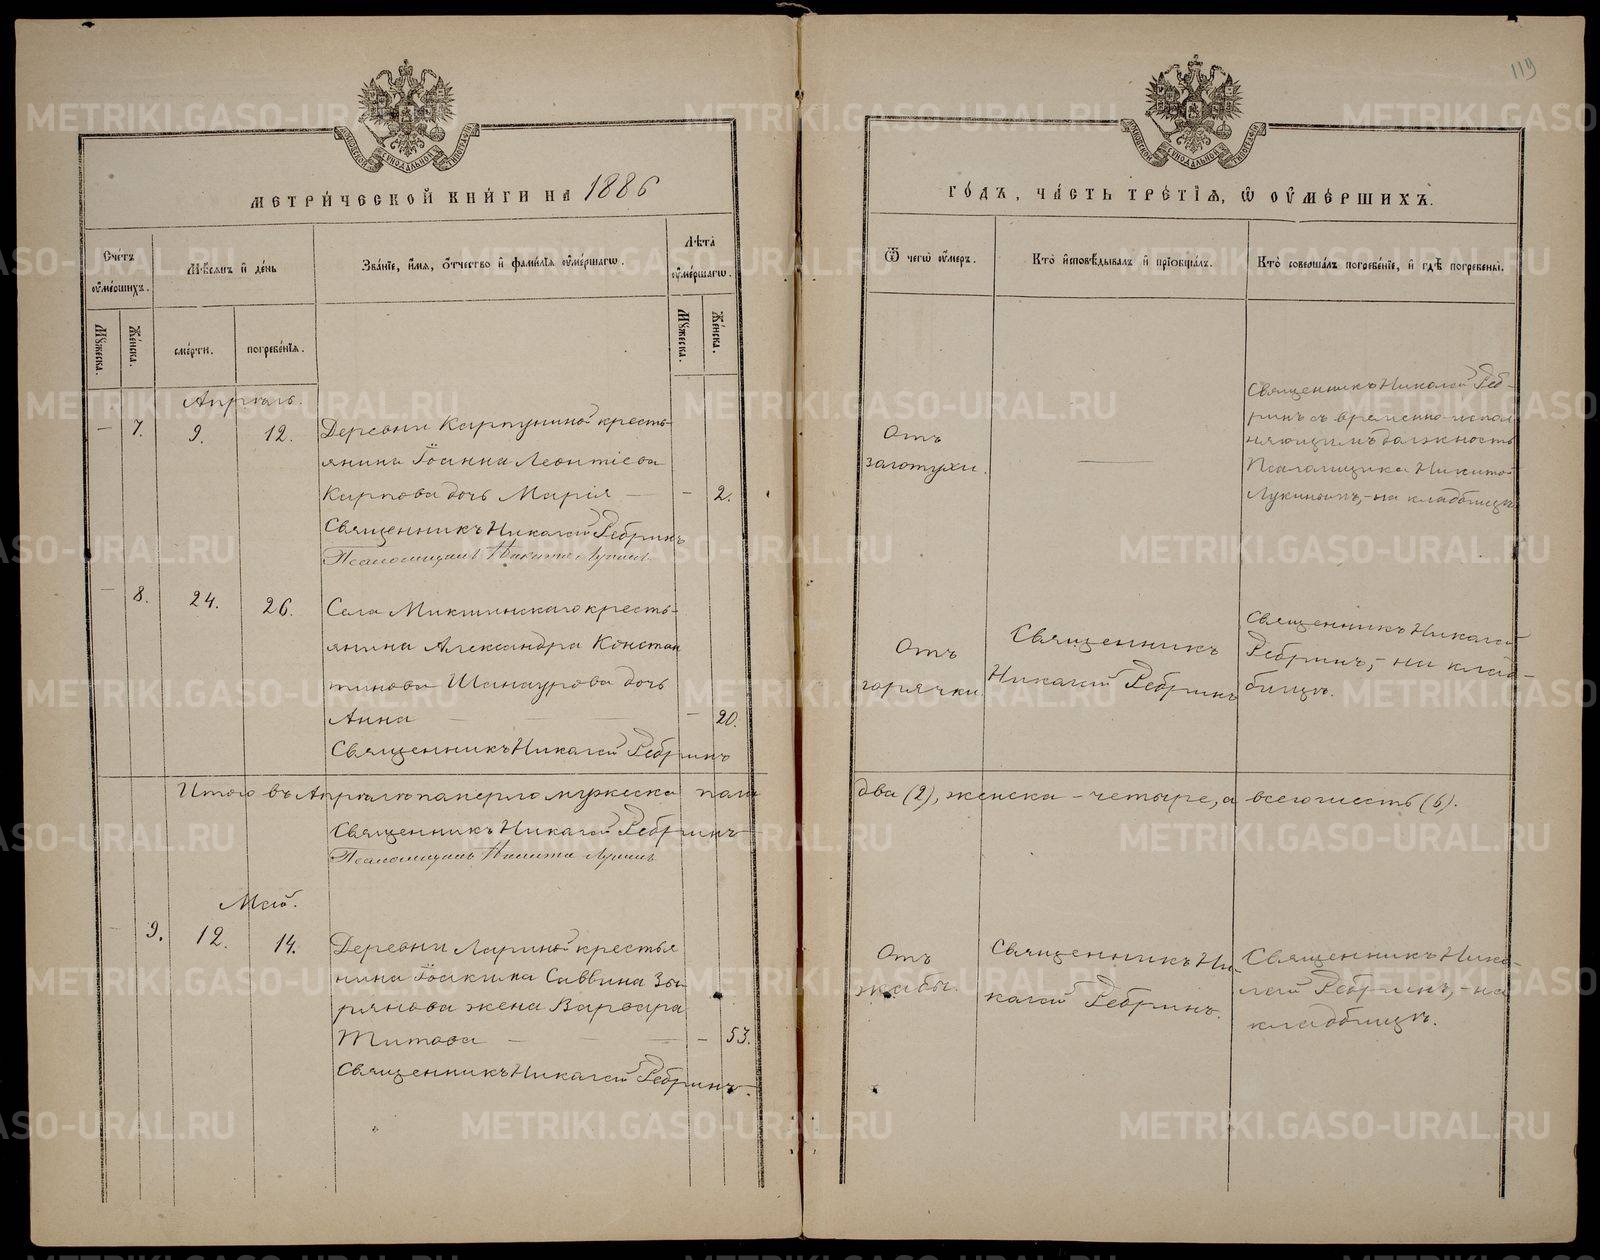 119
МЕТРИ́ЧЕСКОЙ КНИ́ГИ НА 1886
ГО́ДЪ, ЧА́СТЬ ТРЕ́ТІѦ, Ѡ ОУ҆МЕ́РШИХЪ.
Сче́тъ оу҆ме́ршихъ.
Мѣ́сяцъ и҆ де́нь
Зва́нїе, и҆́мѧ, ѻ҆́тчество и҆ фами́лїѧ оу҆ме́ршагѡ.
Лѣ́та оу҆ме́ршагѡ.
Ѿ чегѡ̀ оу҆́меръ.
Кто̀ и҆сповѣ́дывалъ и҆ прїѡбща́лъ.
Кто̀ соверша́лъ погребе́нїе, и҆ гдѣ̀ погребены̀.
Мꙋ́жеска.
Же́нска.
сме́рти.
погребе́нїѧ.
Мꙋ́жеска.
Же́нска.
Апрѣль.
— 7. 9. 12.
Деревни Карпуниной кресть-
янина Іоанна Леонтіева
Карпова дочь Марія — - 2.
Священникъ Николай Ребринъ
Псаломщикъ Никита Лукинъ
Отъ
золотухи.
—
Священникъ Николай Реб-
ринъ съ временно-испол
няющимъ должность
Псаломщика Никитой
Лукинымъ,-на кладбищѣ.
— 8. 24. 26.
Села Микшинскаго кресть-
янина Александра Констан
тинова Шанаурова дочь
Анна — — — - 20.
Священникъ Николай Ребринъ
Отъ
горячки.
Священникъ
Николай Ребринъ
Священникъ Николай
Ребринъ,- на клад-
бищѣ.
Итого въ Апрѣлѣ померло мужеска пола
два (2), женска - четыре, а всего шесть (6).
Священникъ Николай Ребринъ
Псаломщикъ Никита Лукинъ
Май.
9. 12. 14.
Деревни Лариной крестья
нина Іоакима Саввина Зы
рянова жена Варвара
Титова — — — - 53.
Священникъ Николай Ребринъ.
Отъ
жабы.
Священникъ Ни-
колай Ребринъ.
Священникъ Нико-
лай Ребринъ,-на
кладбищѣ.
METRIKI.GASO-URAL.RU